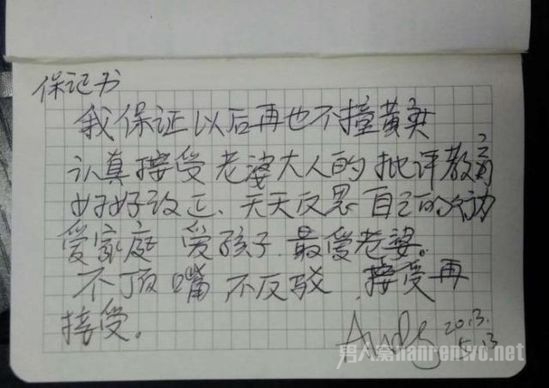 保证书
我保证以后再也不撞黄
认真接受老婆大人的批评教育
好好改正、天天反思自己的
爱家庭 爱孩子.最爱老婆。
不顶嘴 不反驳.接受再
接受。
Andy 2013.
5.13
nanrenwo.net